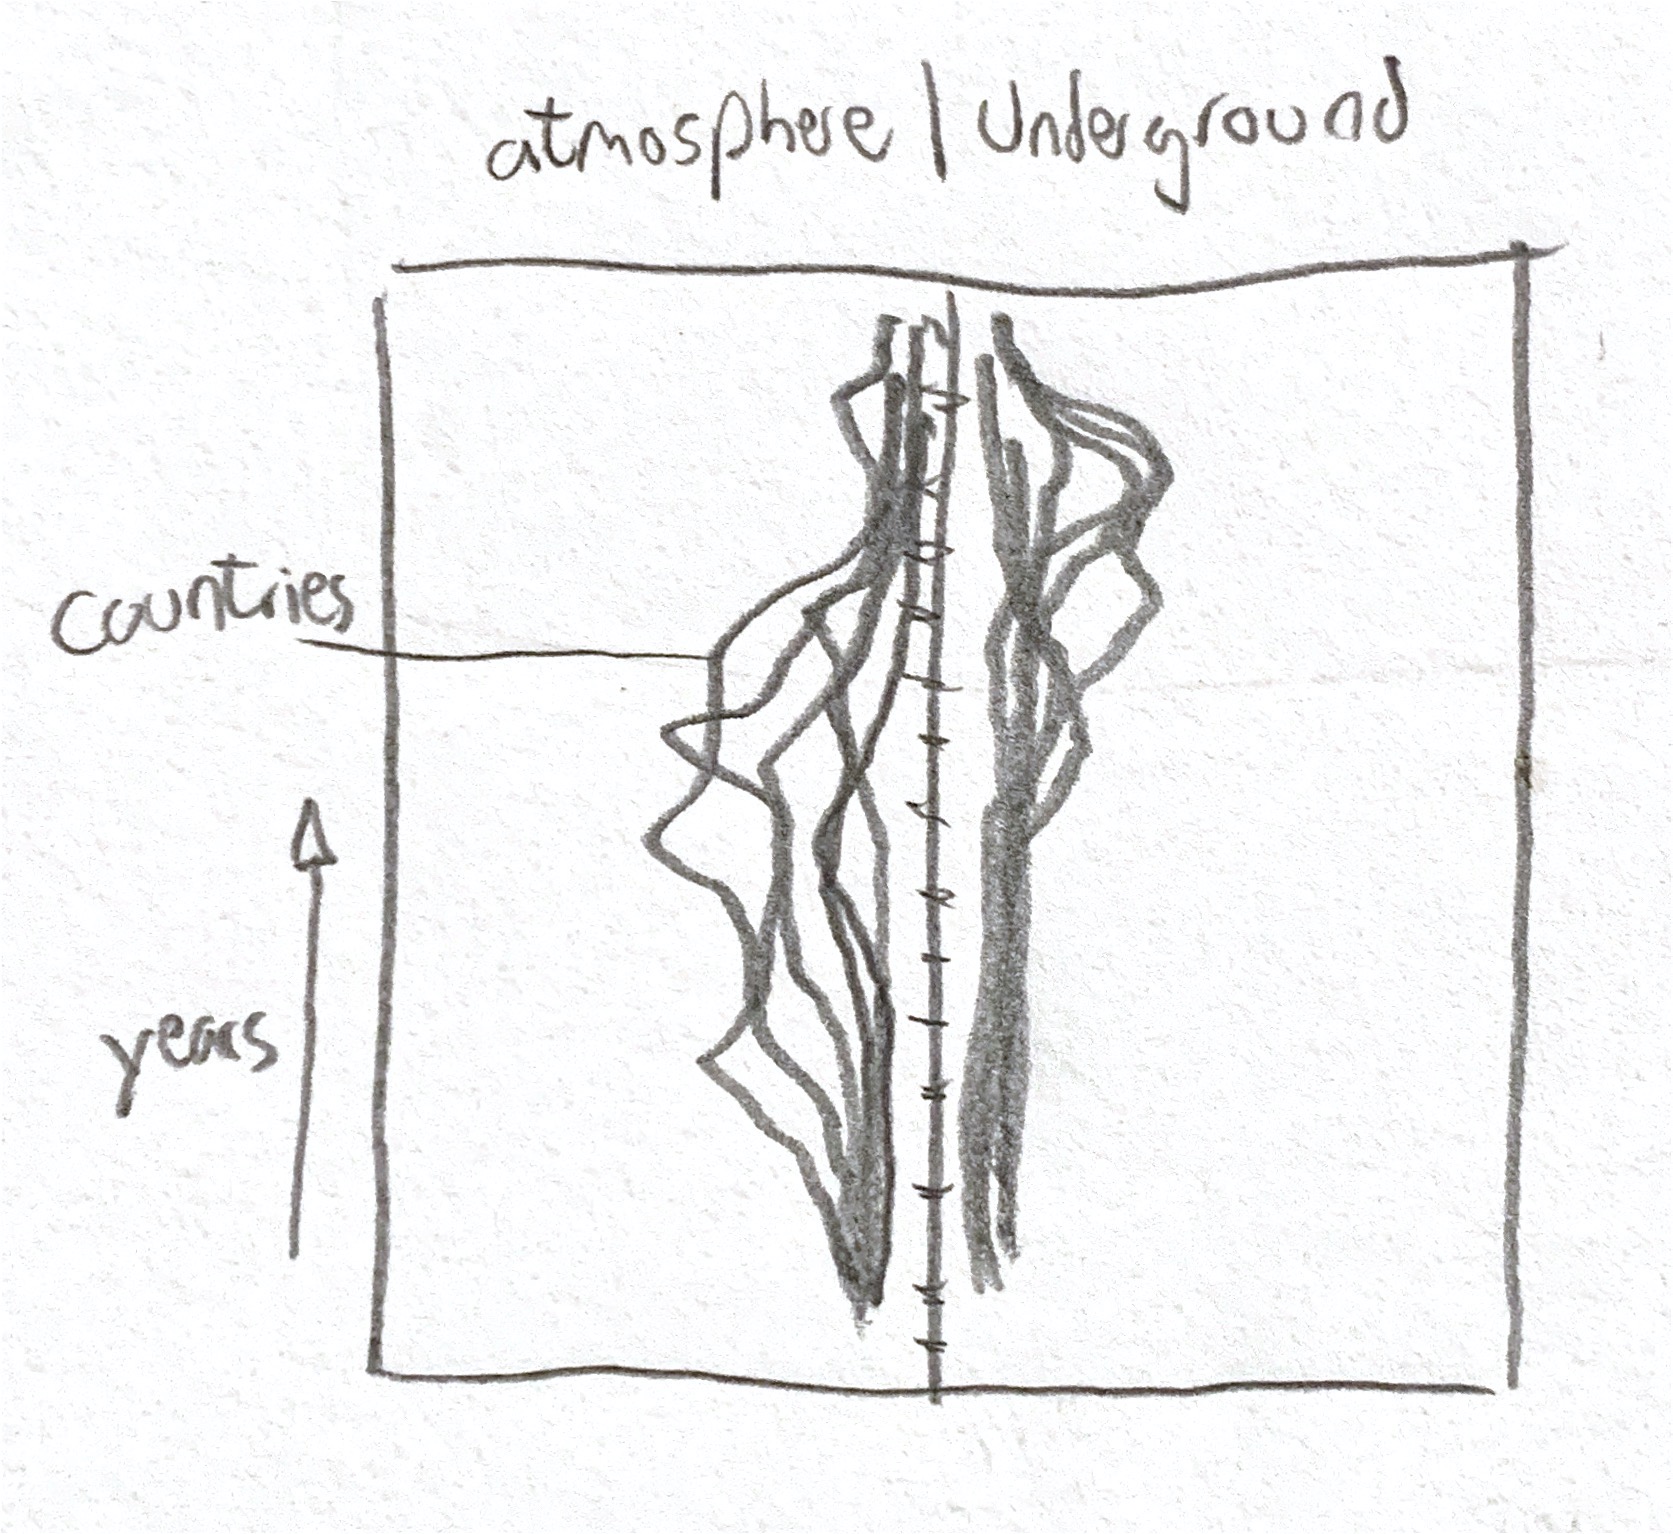 atmosphere | Underground
Countries
years